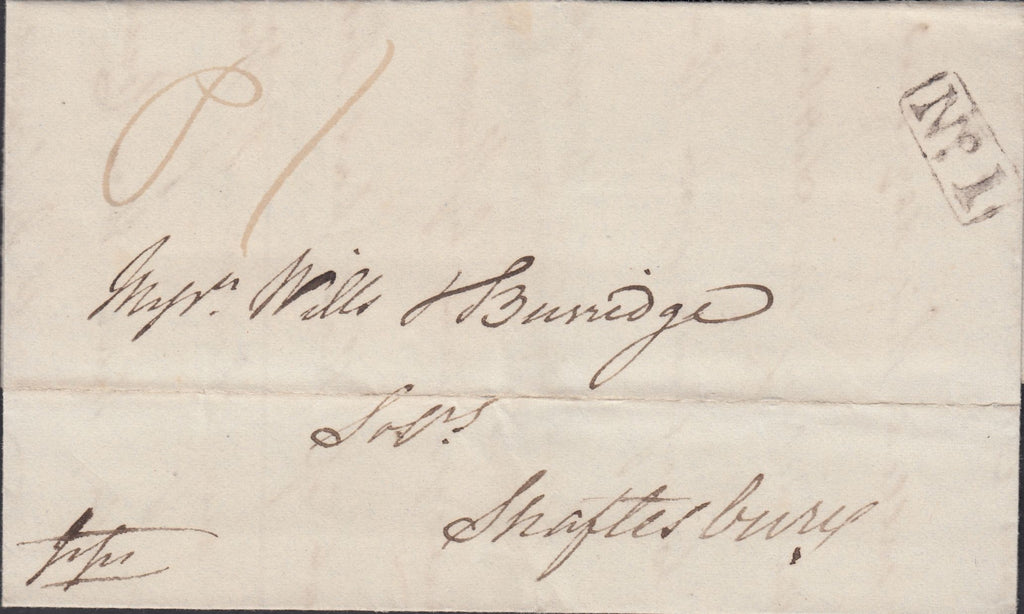 P 1
No. 1
Messrs. Wills & Burridge
Solrs
Shaftesbury